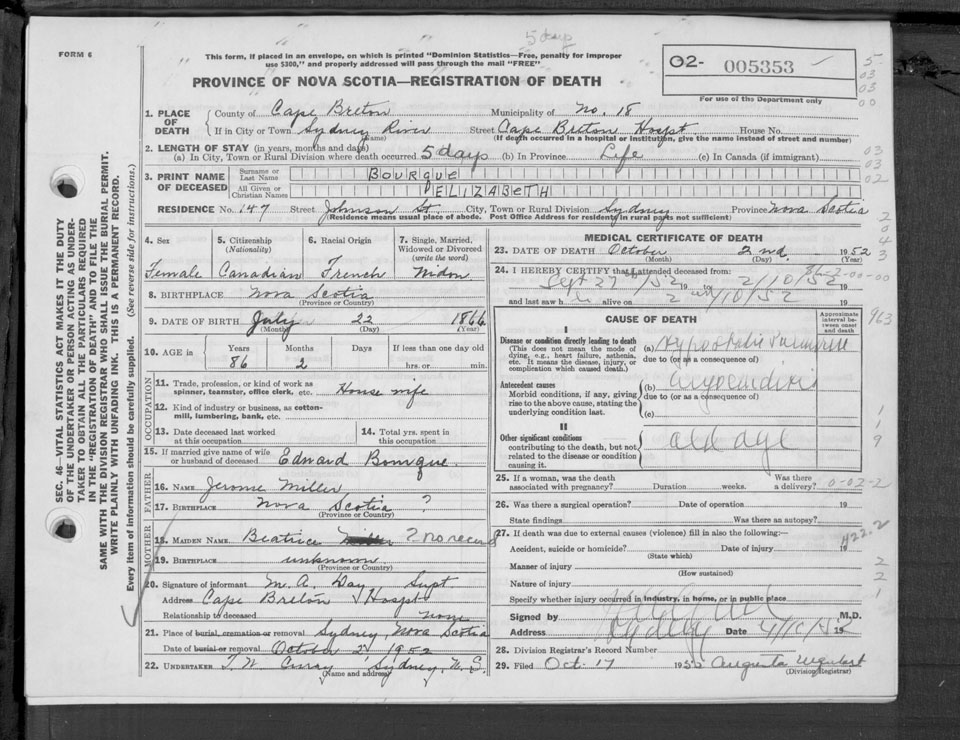 5 days
FORM 6
This form, if placed in an envelope, on which is printed "Dominion Statistics—Free, penalty for improper
use $300," and properly addressed will pass through the mail "FREE"
PROVINCE OF NOVA SCOTIA—REGISTRATION OF DEATH
02- 005353
For use of the Department only
1. PLACE OF DEATH
County of Cape Breton Municipality of No. 18
If in City or Town Sydney River Street Cape Breton Hospt House No.
(Name) (If death occurred in a hospital or institution, give the name instead of street and number)
2. LENGTH OF STAY (in years, months and days)
(a) In City, Town or Rural Division where death occurred 5 days (b) In Province Life (c) In Canada (if immigrant)
3. PRINT NAME OF DECEASED
Surname or Last Name BOURQUE
All Given or Christian Names ELIZABETH
RESIDENCE No. 147 Street Johnson St. City, Town or Rural Division Sydney Province Nova Scotia
(Residence means usual place of abode. Post Office Address for residents in rural parts not sufficient)
4. Sex
Female
5. Citizenship
(Nationality)
Canadian
6. Racial Origin
French
7. Single, Married, Widowed or Divorced
(write the word)
Widow
8. BIRTHPLACE Nova Scotia
(Province or Country)
9. DATE OF BIRTH July 22 1866
(Month) (Day) (Year)
10. AGE in Years Months Days If less than one day old
86 2 hrs. or min.
OCCUPATION
11. Trade, profession, or kind of work as
spinner, teamster, office clerk, etc. House wife
12. Kind of industry or business, as cotton-
mill, lumbering, bank, etc.
13. Date deceased last worked
at this occupation
14. Total yrs. spent in
this occupation
15. If married give name of wife
or husband of deceased Edward Bourque.
FATHER
16. NAME Jerome Miller
17. BIRTHPLACE Nova Scotia ?
(Province or Country)
MOTHER
18. MAIDEN NAME Beatrice ? no record
19. BIRTHPLACE unknown
(Province or Country)
20. Signature of informant M. A. Day Supt
Address Cape Breton Hospt
Relationship to deceased none
21. Place of burial, cremation or removal Sydney, Nova Scotia
Date of burial or removal October 2 1952
22. UNDERTAKER T. W. Curray Sydney, N. S.
(Name and address)
MEDICAL CERTIFICATE OF DEATH
23. DATE OF DEATH October 2nd. 1952
(Month) (Day) (Year)
24. I HEREBY CERTIFY that I attended deceased from:
Sept 27/52 19 to 2/10/52 19
and last saw h alive on 2nd/10/52 19
CAUSE OF DEATH
Approximate interval between onset and death
I
Disease or condition directly leading to death
(This does not mean the mode of
dying, e.g., heart failure, asthenia,
etc. It means the disease, injury, or
complication which caused death.)
(a) Hypostatic
due to (or as a consequence of)
Antecedent causes
Morbid conditions, if any, giving
rise to the above cause, stating the
underlying condition last.
(b) Myocarditis
due to (or as a consequence of)
(c)
II
Other significant conditions
contributing to the death, but not
related to the disease or condition
causing it.
old age
25. If a woman, was the death
associated with pregnancy? Duration weeks. Was there
a delivery?
26. Was there a surgical operation? Date of operation 19
State findings Was there an autopsy?
27. If death was due to external causes (violence) fill in also the following:—
Accident, suicide or homicide? Date of injury 19
(State which)
Manner of injury
(How sustained)
Nature of injury
Specify whether injury occurred in industry, in home, or in public place
Signed by M.D.
Address Sydney Date 19
28. Division Registrar's Record Number
29. Filed Oct. 17 1952 Augusta Urquhart
(Division Registrar)
SEC. 46—VITAL STATISTICS ACT MAKES IT THE DUTY
OF THE UNDERTAKER OR PERSON ACTING AS UNDER-
TAKER TO OBTAIN ALL THE PARTICULARS REQUIRED
IN THE "REGISTRATION OF DEATH" AND TO FILE THE
SAME WITH THE DIVISION REGISTRAR WHO SHALL ISSUE THE BURIAL PERMIT.
WRITE PLAINLY WITH UNFADING INK. THIS IS A PERMANENT RECORD.
Every item of information should be carefully supplied. (See reverse side for instructions.)